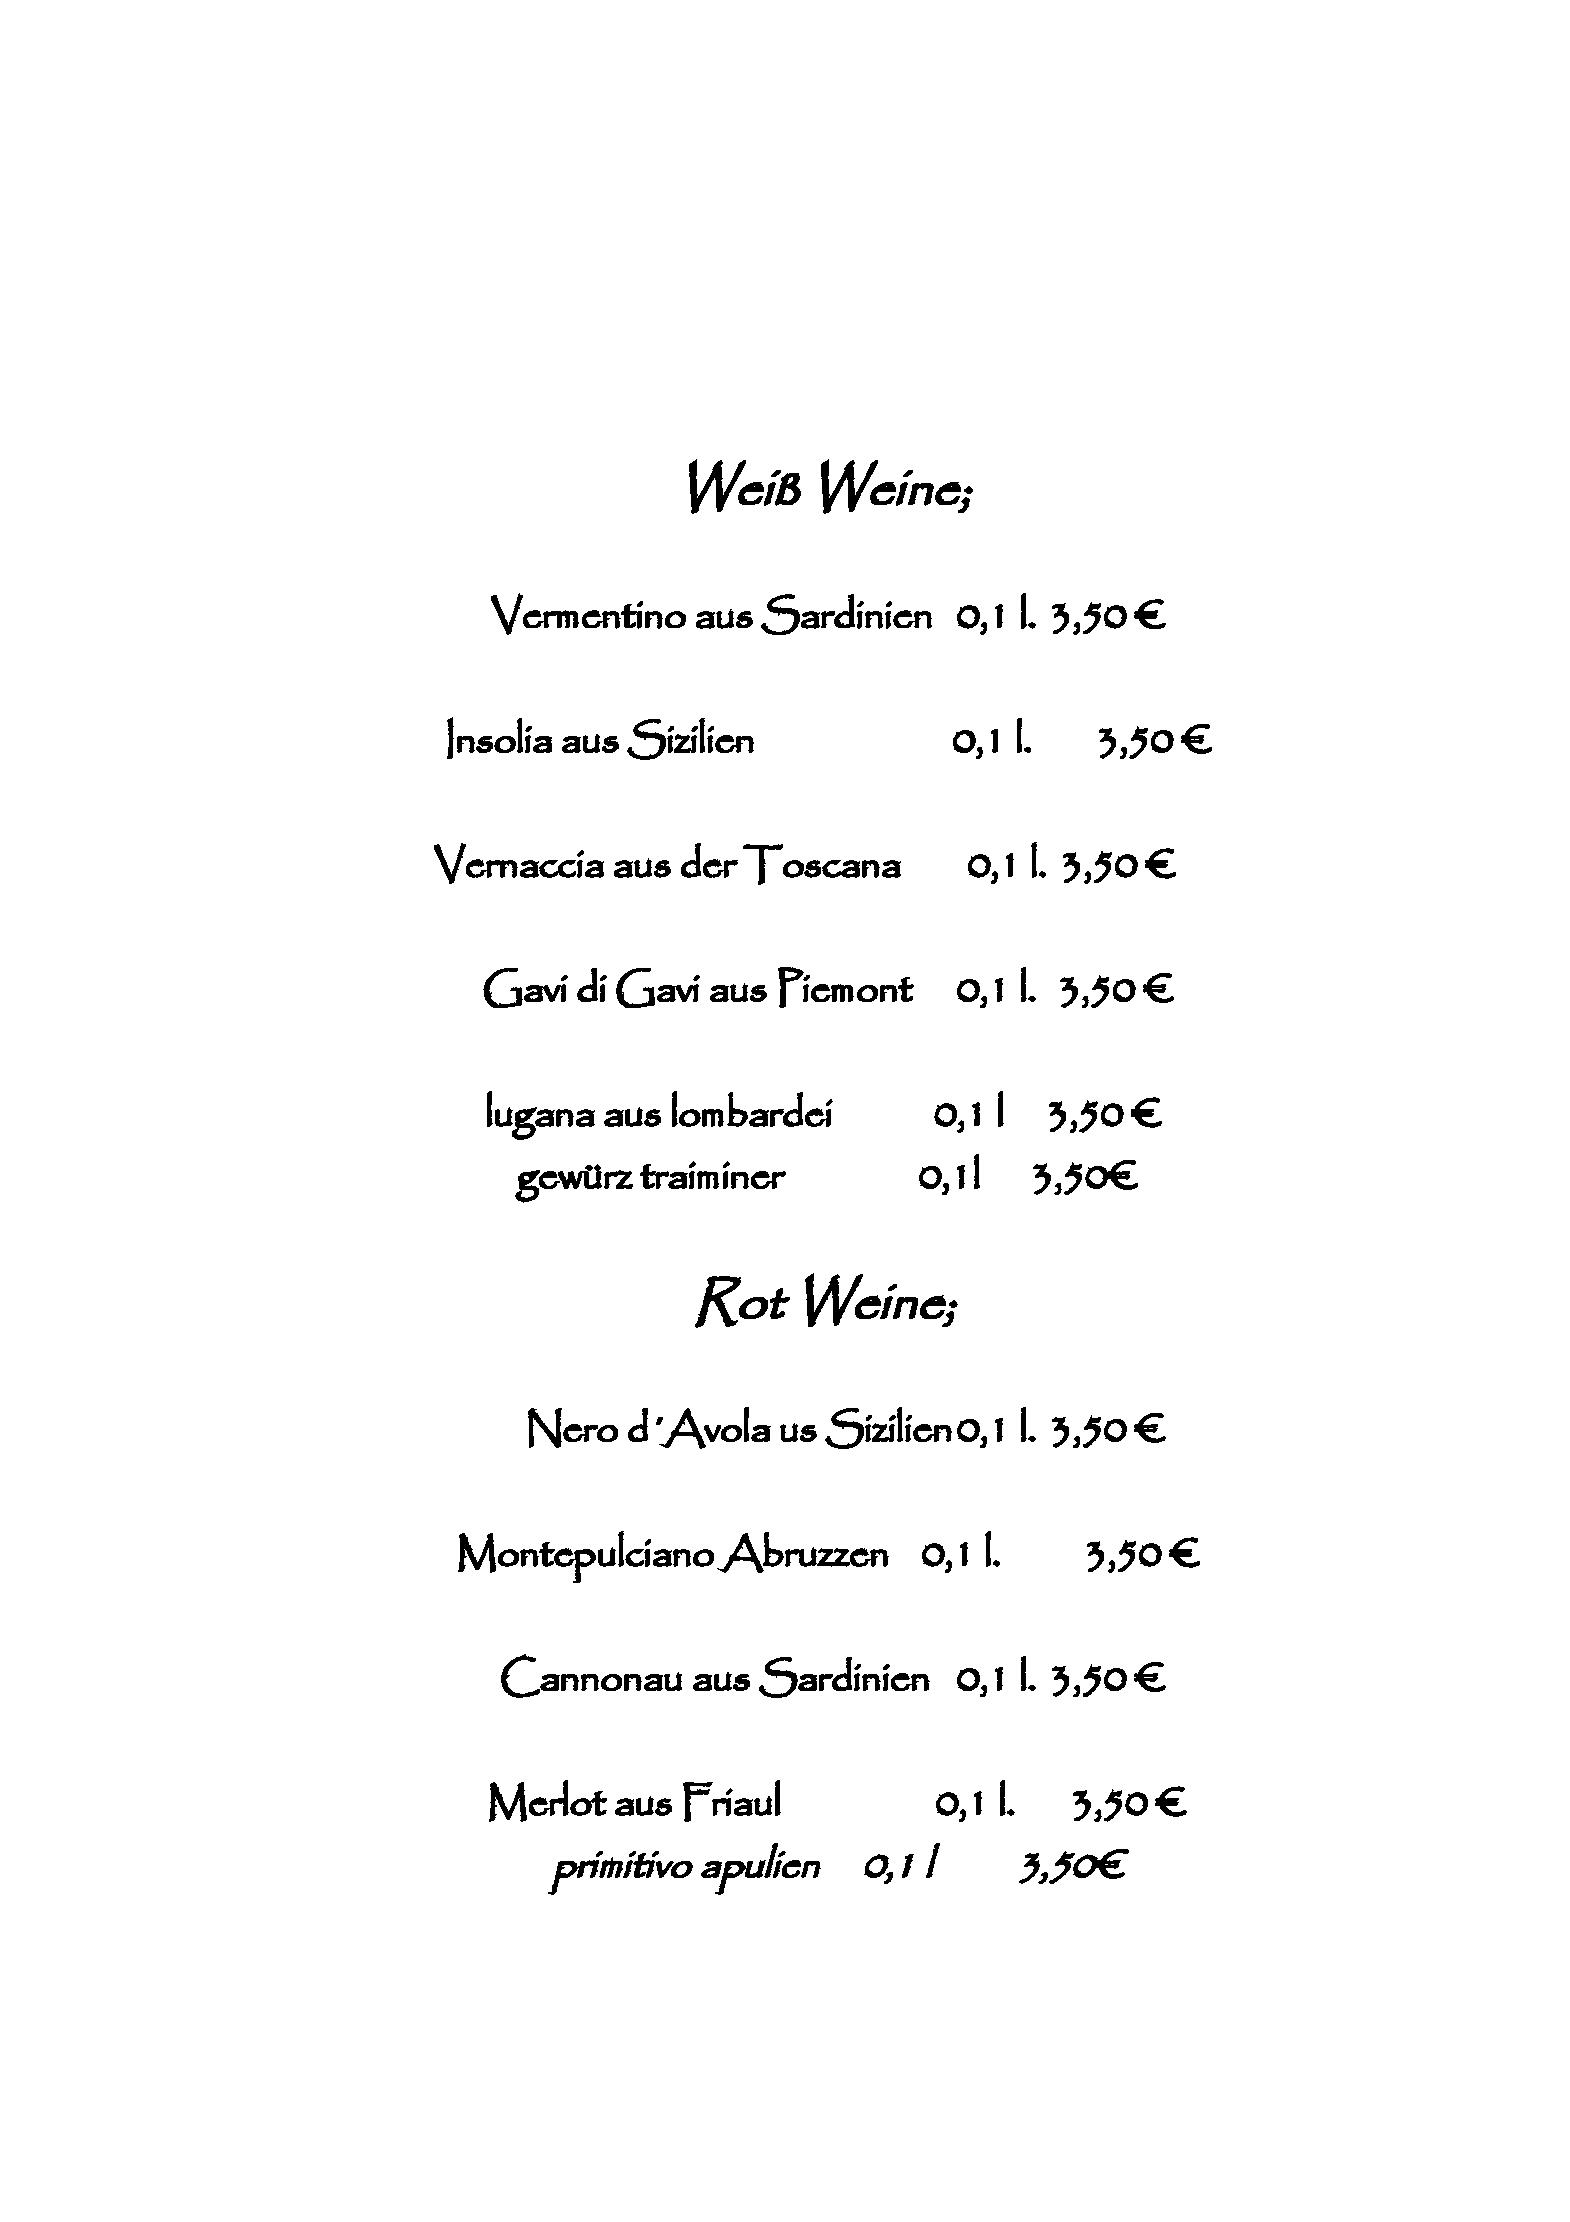 Weiß Weine;
Vermentino aus Sardinien 0,1 l. 3,50 €
Insolia aus Sizilien 0,1 l. 3,50 €
Vernaccia aus der Toscana 0,1 l. 3,50 €
Gavi di Gavi aus Piemont 0,1 l. 3,50 €
lugana aus lombardei 0,1 l 3,50 €
gewürz traiminer 0,1 l 3,50€
Rot Weine;
Nero d´Avola us Sizilien 0,1 l. 3,50 €
Montepulciano Abruzzen 0,1 l. 3,50 €
Cannonau aus Sardinien 0,1 l. 3,50 €
Merlot aus Friaul 0,1 l. 3,50 €
primitivo apulien 0,1 l 3,50€